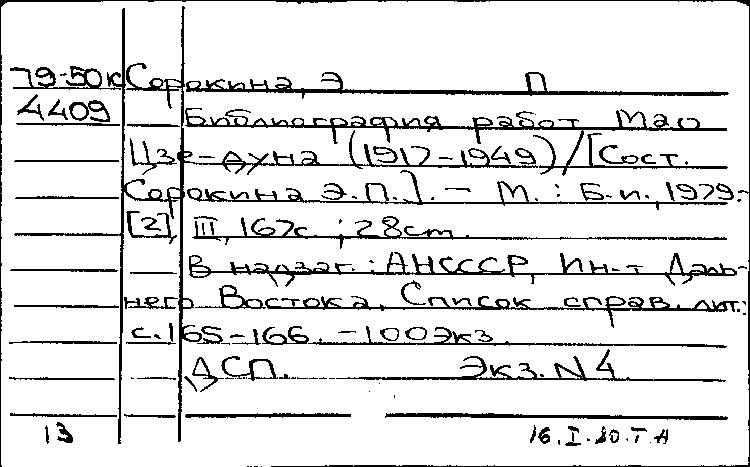 79-50к Сорокина, Э П
4409 Библиография работ Мао
Цзе-дуна (1917-1949)/[Сост.
Сорокина Э.П.]. - М. : Б.и., 1979.-
[2], III, 167с. ; 28см.
В надзаг. : АНСССР, Ин-т Даль-
него Востока. Список справ. лит.:
с.165-166. -100экз.
ДСП. Экз. N4
13 16.I.80.ТА